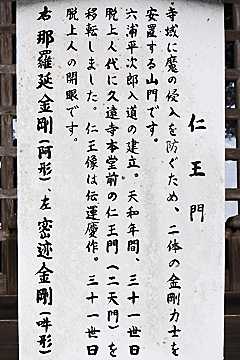 仁王門
寺域に魔の侵入を防ぐため、二体の金剛力士を
安置する山門です。
六浦平次郎入道の建立。天和年間、三十一世日
脱上人代に久遠寺本堂前の仁王門（二天門）を
移転しました。仁王像は伝運慶作。三十一世日
脱上人の開眼です。
右 那羅延金剛（阿形）、左 密迹金剛（吽形）